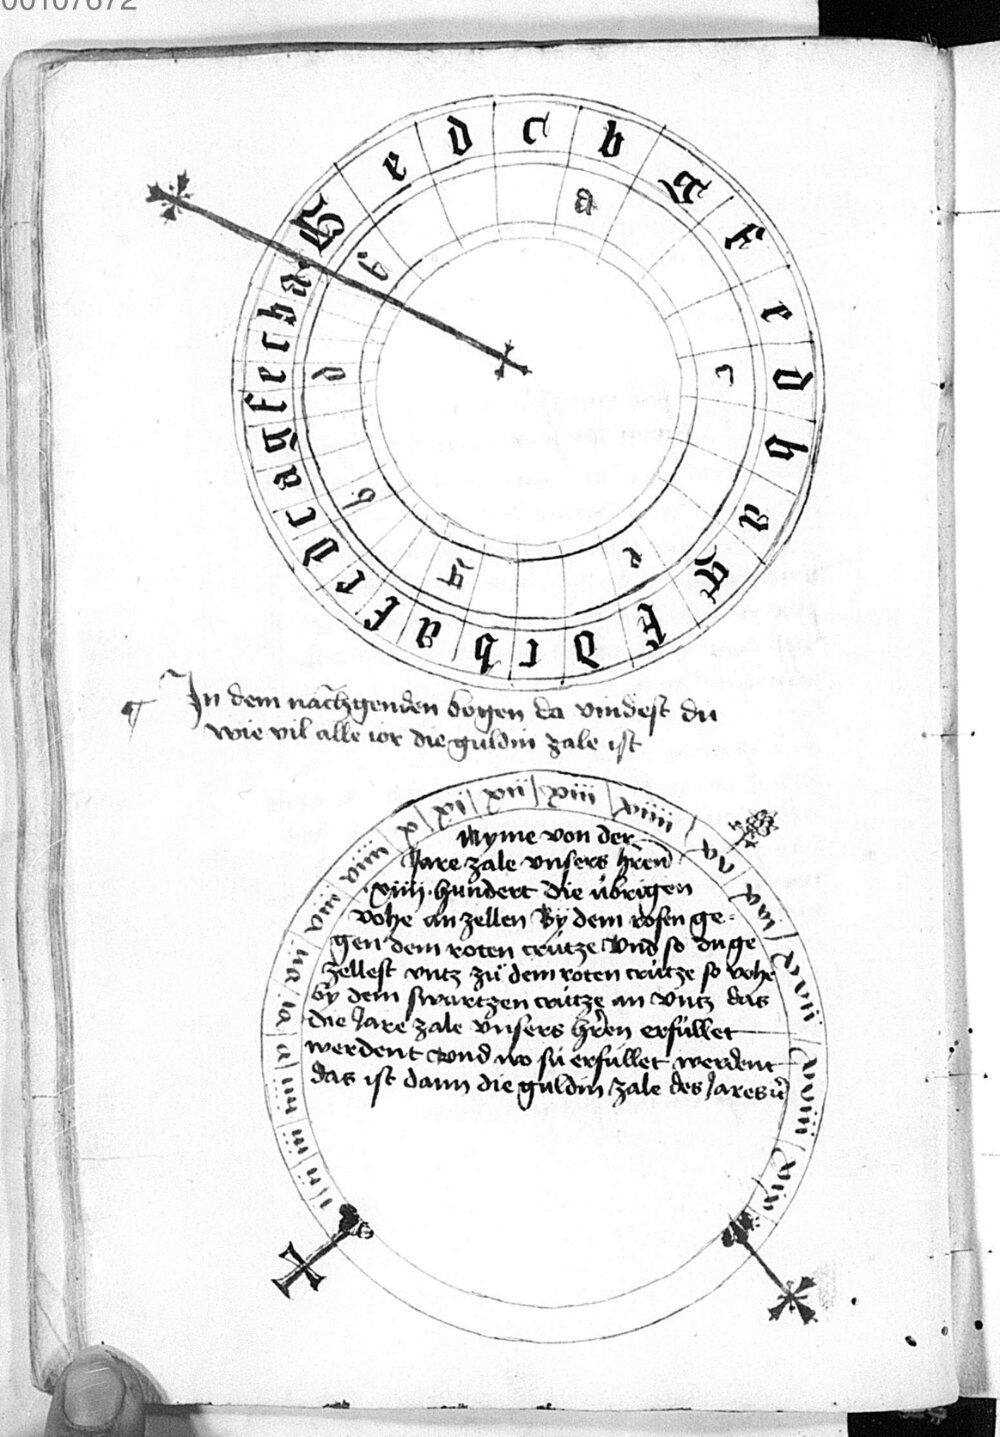 00107672
e d c b g f e d b a g f d c b a f e d c a g f e c b a g
a c e g b d g
In dem nachgenden bogen da vindest du
wie vil alle ior die guldin zale ist
Nyme von der
Jare zale vnsers hren
xiiii hundert die übrigen
vohe an zellen By dem rosen ge=
gen dem roten crütze Vnd so du ge
zellest vntz zü dem roten crütze so vohe
by dem swartzen crütze an vntz das
die Jare zale vnsers hren erfüllet
werdent vnd wo sü erfüllet werdent
das ist dann die guldin zale des Jares
i ii iii iiii v vi vii viii viiii x xi xii xiii xiiii xv xvi xvii xviii xix